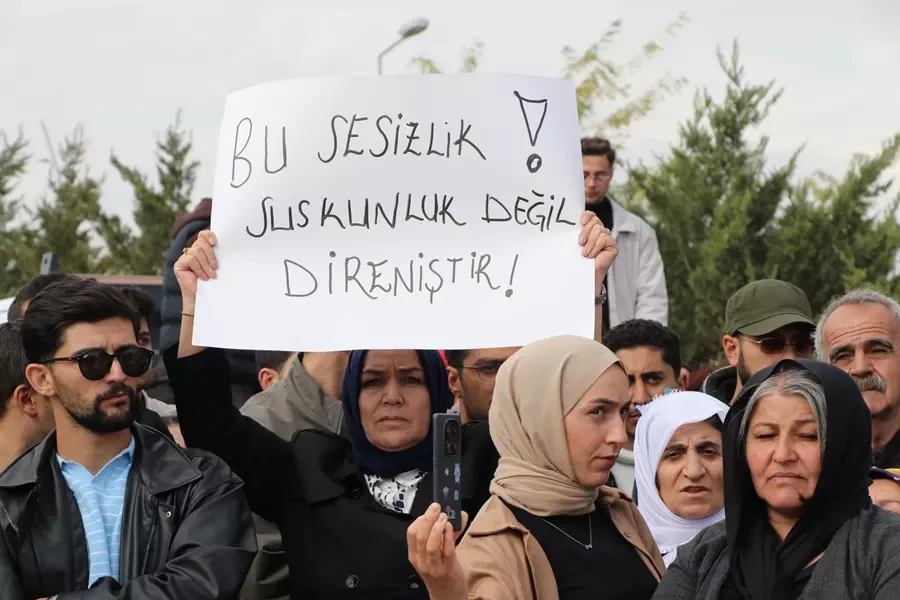 BU SESİZLİK !
SUSKUNLUK DEĞİL
DİRENİŞTİR!